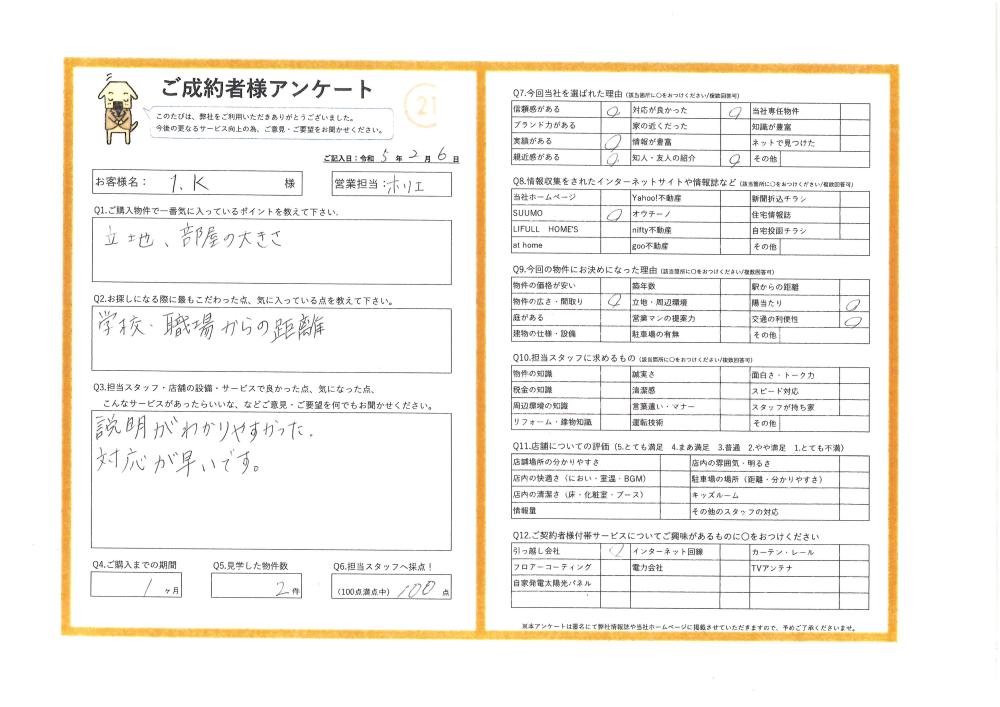 ご成約者様アンケート
21
このたびは、弊社をご利用いただきありがとうございました。
今後の更なるサービス向上の為、ご意見・ご要望をお聞かせください。
ご記入日：令和 5 年 2 月 6 日
お客様名： I.K 様
営業担当：ホリエ
Q1.ご購入物件で一番気に入っているポイントを教えて下さい.
立地、部屋の大きさ
Q2.お探しになる際に最もこだわった点、気に入っている点を教えて下さい。
学校・職場からの距離
Q3.担当スタッフ・店舗の設備・サービスで良かった点、気になった点、
こんなサービスがあったらいいな、などご意見・ご要望を何でもお聞かせください。
説明がわかりやすかった.
対応が早いです。
Q4.ご購入までの期間
1 ヶ月
Q5.見学した物件数
2 件
Q6.担当スタッフへ採点！
(100点満点中) 100 点
Q7.今回当社を選ばれた理由 (該当箇所に〇をおつけください/複数回答可)
信頼感がある ○ 対応が良かった ○ 当社専任物件
ブランド力がある 家の近くだった 知識が豊富
実績がある ○ 情報が豊富 ネットで見つけた
親近感がある ○ 知人・友人の紹介 ○ その他
Q8.情報収集をされたインターネットサイトや情報誌など (該当箇所に〇をおつけください/複数回答可)
当社ホームページ Yahoo!不動産 新聞折込チラシ
SUUMO ○ オウチーノ 住宅情報誌
LIFULL HOME'S nifty不動産 自宅投函チラシ
at home goo不動産 その他
Q9.今回の物件にお決めになった理由 (該当箇所に〇をおつけください/複数回答可)
物件の価格が安い 築年数 駅からの距離
物件の広さ・間取り ○ 立地・周辺環境 陽当たり ○
庭がある 営業マンの提案力 交通の利便性 ○
建物の仕様・設備 駐車場の有無 その他
Q10.担当スタッフに求めるもの (該当箇所に〇をおつけください/複数回答可)
物件の知識 誠実さ 面白さ・トーク力
税金の知識 清潔感 スピード対応
周辺環境の知識 言葉遣い・マナー スタッフが持ち家
リフォーム・建物知識 運転技術 その他
Q11.店舗についての評価（5.とても満足 4.まあ満足 3.普通 2.やや満足 1.とても不満）
店舗場所の分かりやすさ 店内の雰囲気・明るさ
店内の快適さ（におい・室温・BGM） 駐車場の場所（距離・分かりやすさ）
店内の清潔さ（床・化粧室・ブース） キッズルーム
情報量 その他のスタッフの対応
Q12.ご契約者様付帯サービスについてご興味があるものに〇をおつけください
引っ越し会社 ○ インターネット回線 カーテン・レール
フロアーコーティング 電力会社 TVアンテナ
自家発電太陽光パネル
※本アンケートは匿名にて弊社情報誌や当社ホームページに掲載させていただきますので、予めご了承くださいませ。